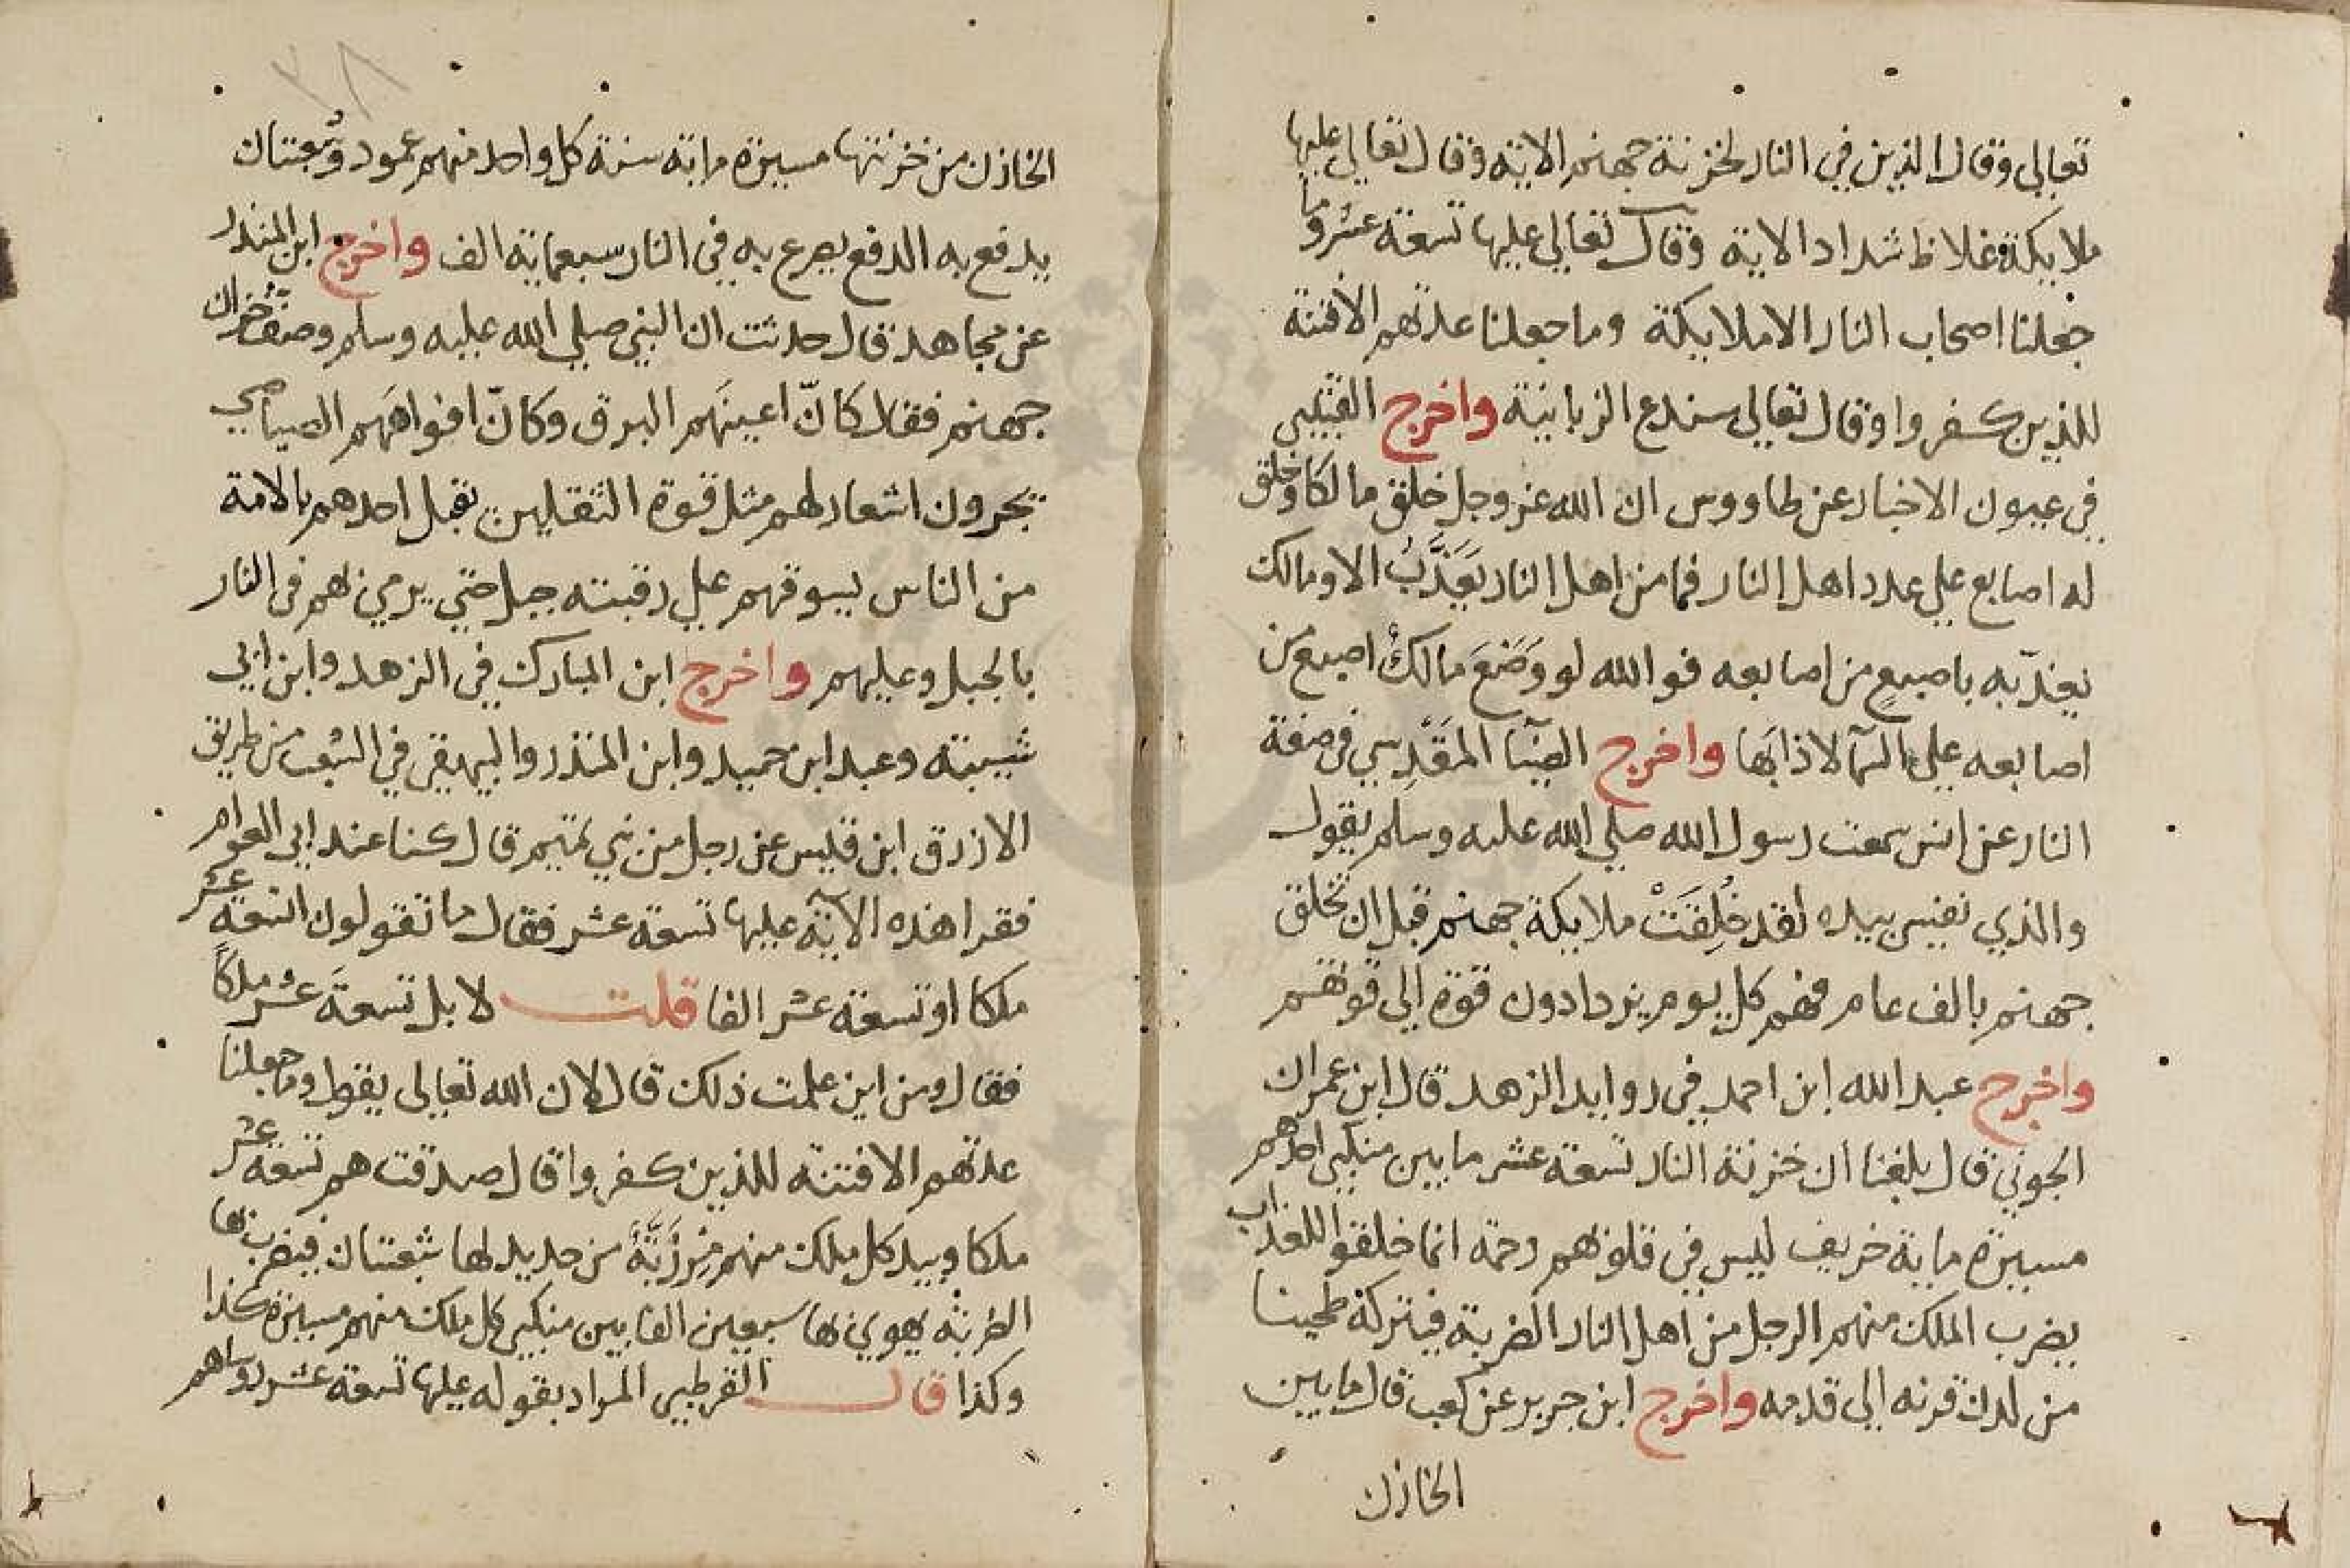 تعالى وقال الذين في النار لخزنة جهنم الاية وقال تعالى عليها
ملايكة غلاظ شداد الاية وقال تعالى عليها تسعة عشر وما
جعلنا اصحاب النار الا ملايكة وما جعلنا عدتهم الا فتنة
للذين كفروا وقال تعالى سندع الزبانية واخرج القتيبي
في عيون الاخبار عن طاووس ان الله عز وجل خلق مالكا وخلق
له اصابع على عدد اهل النار فما من اهل النار يُعَذَّبُ الا ومالك
يعذّبه باصبع من اصابعه فوالله لو وَضَعَ مالكٌ اصبع من
اصابعه على السمآ لاذابَها واخرج الضيآ المقَدِسي في صفة
النار عن انس سمعت رسول الله صلي الله عليه وسلم يقول
والذي نفسي بيده لقد خُلِقَتْ ملايكة جهنم قبل ان تخلق
جهنم بالف عام فهم كل يوم يزدادون قوة الى قوتهم
واخرج عبد الله ابن احمد في روايد الزهد قال ابن عمران
الجوني قال بلغنا ان خزنة النار تسعة عشر ما بين منكبي احدهم
مسيرة ماية خريف ليس في قلوبهم رحمة انما خلقوا للعذاب
يضرب الملك منهم الرجل من اهل النار الضربة فيتركه طحينا
من لدن قرنه الى قدمه واخرج ابن جرير عن كعب قال ما بين
الخازن
٢٨
الخازن من خزنتها مسيرة ماية سنة كل واحد منهم عمود وشعبتان
يدفع به الدفع يصرع به في النار سبعماية الف واخرج ابن المنذر
عن مجاهد قال حدثت ان النبي صلي الله عليه وسلم وصف خزان
جهنم فقال كانّ اعينهَم البرق وكانّ افواههَم الصياصي
يجرون اشعارهم لهم مثل قوة الثقلين يقبل احدهم بالامة
من الناس يسوقهم علي رقبته جبل حتي يرمي بهم في النار
بالجبل وعليهم واخرج ابن المبارك في الزهد وابن ابي
شيبة وعبد ابن حميد وابن المنذر والبيهقي في البعث من طريق
الازرق ابن قيس عن رجل من بني تميم قال كنا عند ابي العوام
فقرا هذه الآية عليها تسعة عشر فقال ما تقولون اتسعة عشر
ملكا او تسعة عشر الفا قلت لا بل تسعةَ عشر ملكاً
فقال ومن اين علمت ذلك قال لان الله تعالى يقول وما جعلنا
عدتهم الا فتنة للذين كفروا قال صدقت هم تسعة عشر
ملكا وبيد كل ملك منهم مِرزَبَّةٌ من حديد لها شعبتان فيضرب بها
الضربة يهوي بها سبعين الفا بين منكبي كل ملك منهم مسيرة كذا
وكذا قال القرطبي المراد بقوله عليها تسعة عشر روساهم